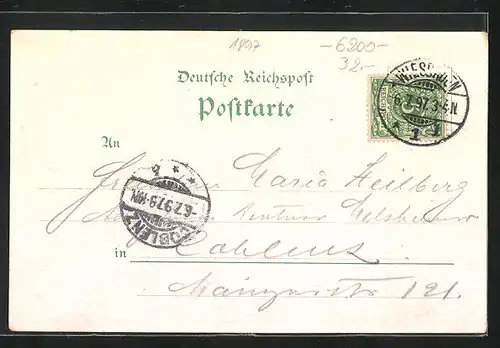 1897
-6200-
32.-
Deutsche Reichspost
Postkarte
WIESBADEN
6.7.97. 3-4N.
* 1 1
An
Maria Heilberg
COBLENZ
-6.7.97.
in Coblenz
Mainzerstr 121.